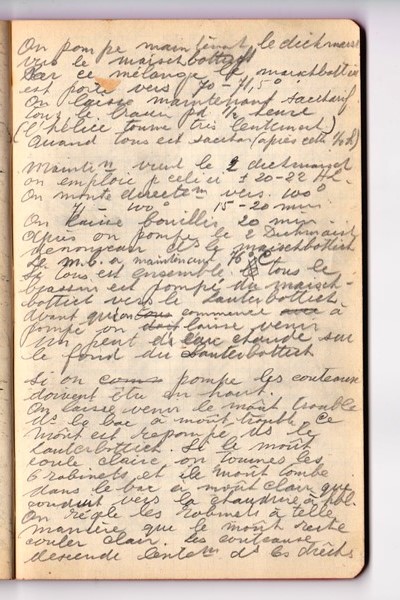 On pompe maintenant le dickmaisch
vers le maischbottich
Par ce mélange le maischbottich
est porté vers 70 - 71,5°
On laisse maintenant saccharif.
tout le brassin pd 1/2 heure
(l'hélice tourne très lentement)
Quand tous est sacchar. (après cette 1/2 h)
Maintn vient le 2 dickmaisch
on emploie à celui ci ± 20-22 HL
On monte directem vers 100°
71 - 100° 15 - 20 min.
On laisse bouillir 20 min.
après on pompe le 2 Dickmaisch
de nouveau ds le maischbottich
Le M.B. a maintenant 76°C
Si tous est ensemble tous le
brassin est pompé du maisch-
bottich vers le Lauterbottich
avant qu'on commence à
pomper on laisse venir
un peut de l'eau chaude sur
le fond du Lauterbottich
Si on pompe les couteaux
doivent être en haut.
On laisse venir le moût trouble
ds le bac à moût trouble. Ce
moût est repompé ds le
Lauterbottich. Si le moût
coule claire on tournes les
6 robinets et le moût tombe
dans le bac à moût clair que
conduit vers la chaudière à
On règle les robinets à telle
manière que le moût reste
couler clair. Les couteaux
descende lentem ds les drêches